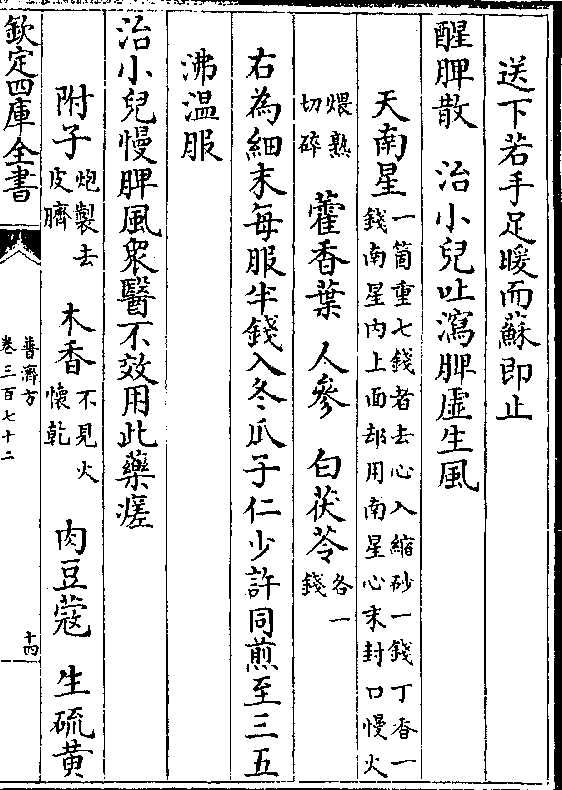 送下若手足暖而蘇即止
醒脾散 治小兒吐瀉脾虛生風
天南星一箇重七錢者去心入縮砂一錢丁香一錢南星内上面却用南星心末封口慢火
煨熟切碎 藿香葉 人參 白茯苓各一錢
右為細末每服半錢入冬瓜子仁少許同煎至三五
沸温服
治小兒慢脾風衆醫不效用此藥瘥
附子炮製去皮臍 木香不見火懷乾 肉豆蔻 生硫黄
欽定四庫全書
普濟方
卷三百七十二
十四